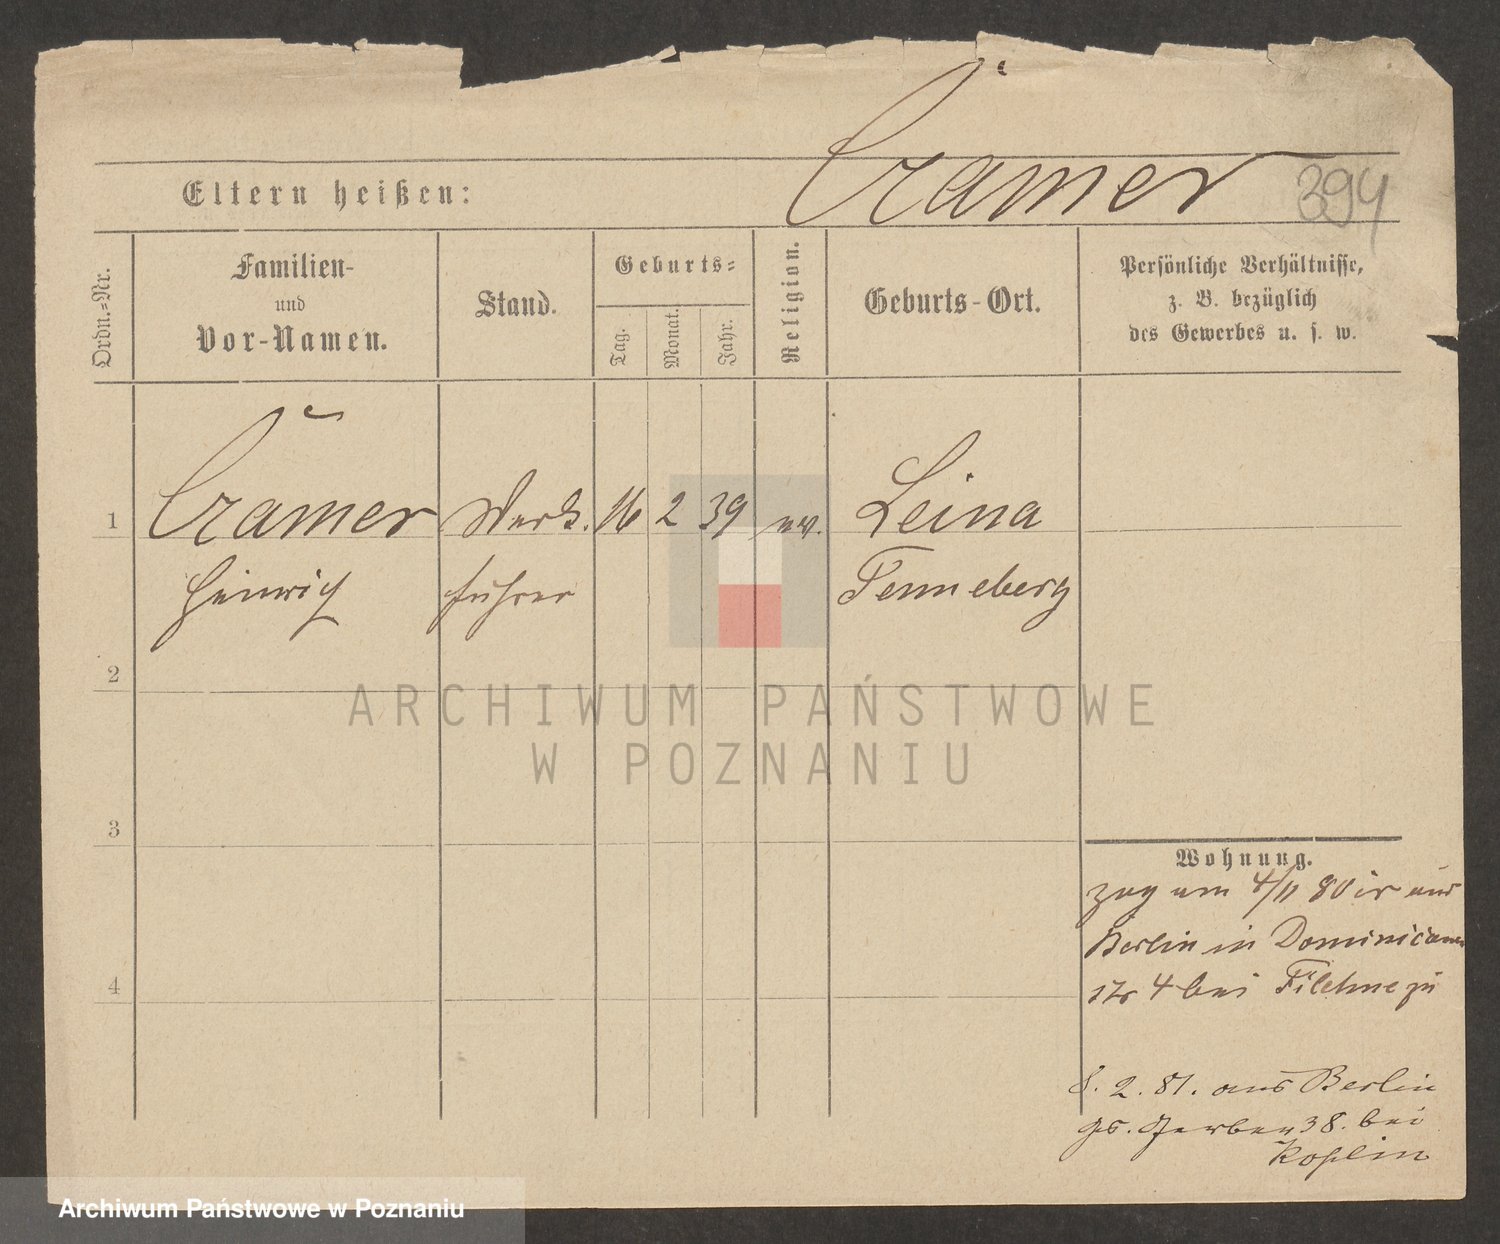 Cramer
394
Eltern heißen:
Ordn.-Nr.
Familien-
und
Vor-Namen.
Stand.
Geburts-
Tag.
Monat.
Jahr.
Religion.
Geburts-Ort.
Persönliche Verhältnisse,
z. B. bezüglich
des Gewerbes u. s. w.
1 Cramer Werk. 16 2 39 ev. Leina
Heinrich führer Tenneberg
2
3
4
Wohnung.
zog am 4/11 80 aus
Berlin in Dominicaner
str 4 bei zu
8. 2. 81. aus Berlin
gs. Gerber 38. bei
Koplin
ARCHIWUM PAŃSTWOWE
W POZNANIU
Archiwum Państwowe w Poznaniu